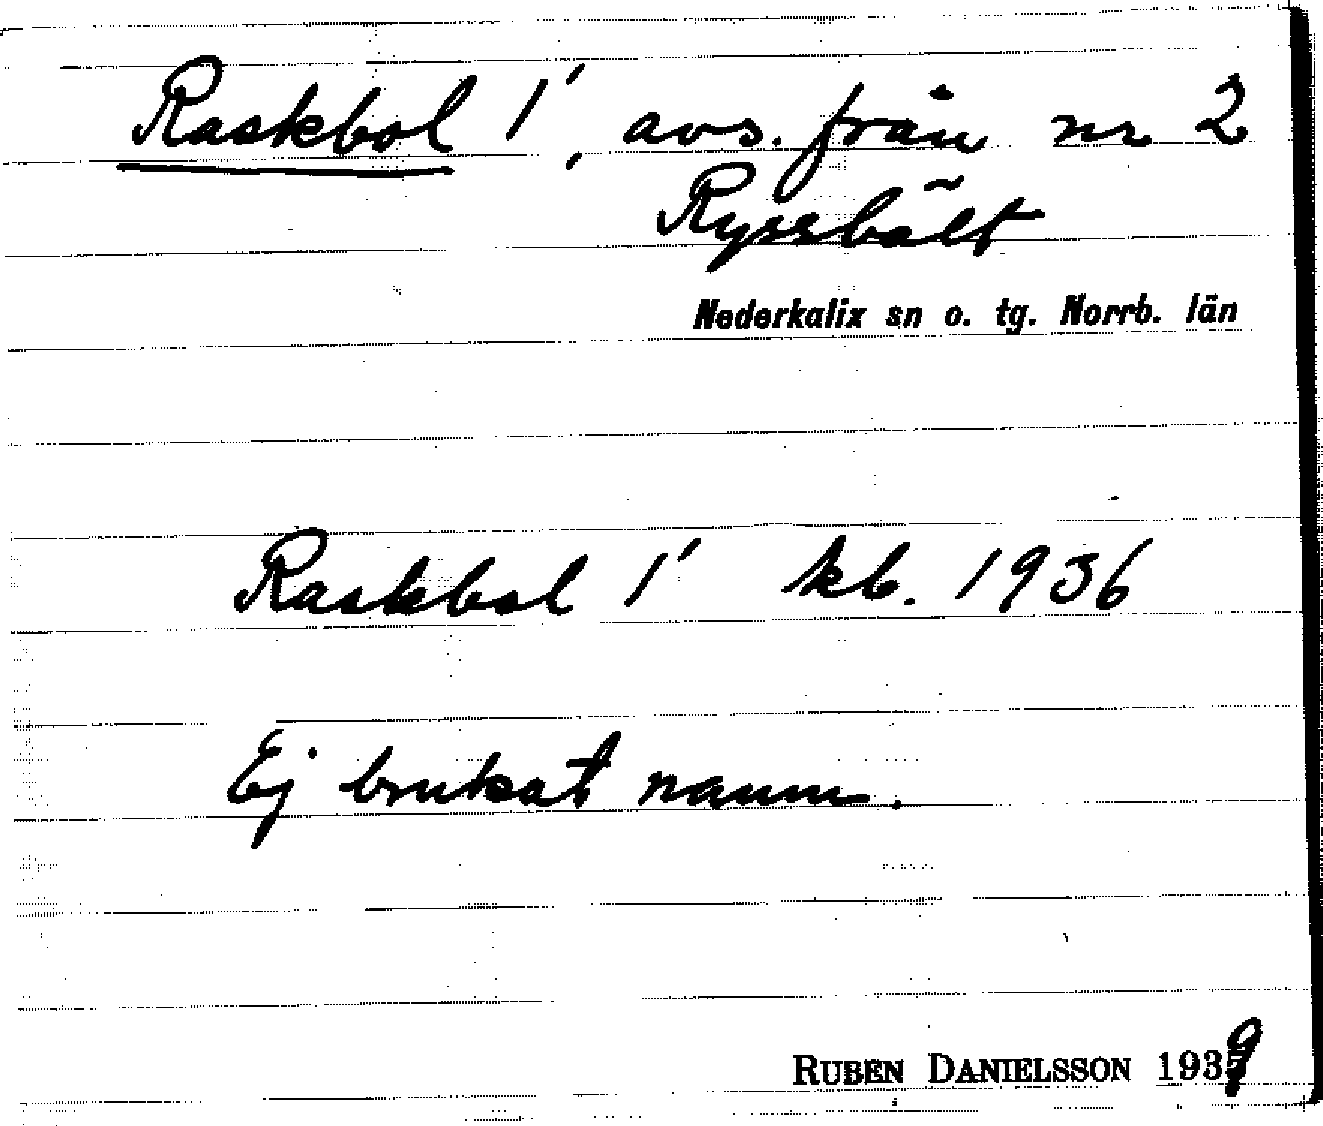 Raskbol 1', avs. från nr 2
Ryssbält
Nederkalix sn o. tg. Norrb. län
Raskbol 1' kb. 1936
Ej brukat namn.
RUBEN DANIELSSON 1939